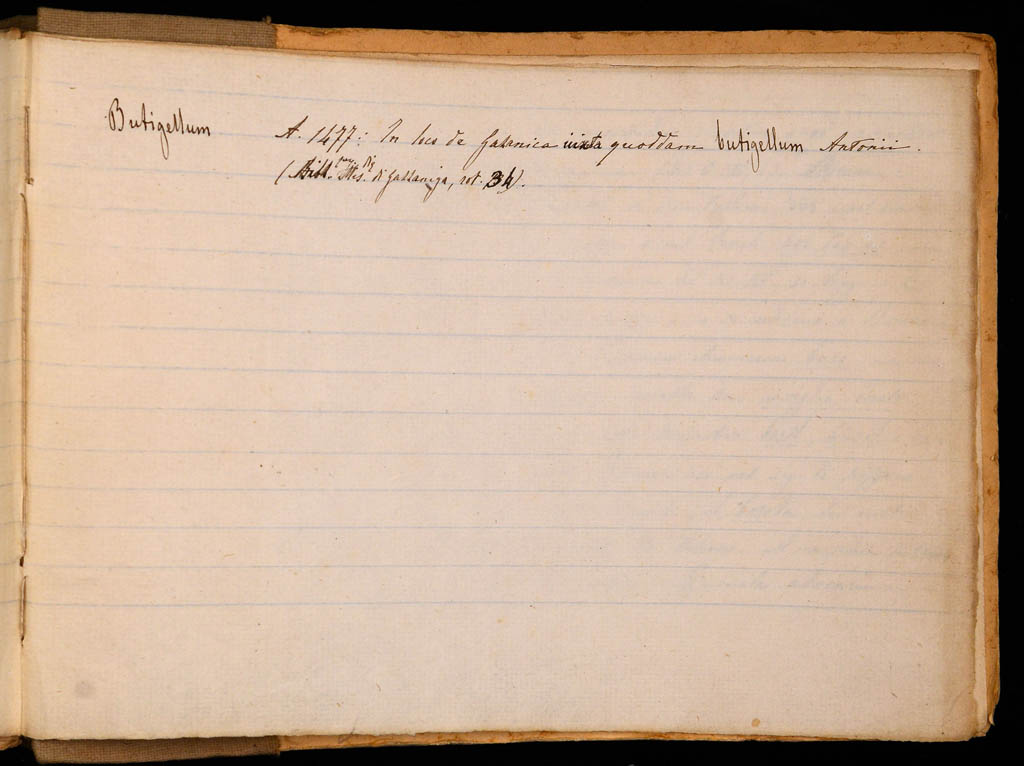 Butigellum A. 1477: In loco de Galanica iuxta quoddam butigellum Antonii.
(Bibl. Mss. di Gallaniga, rot. 34).